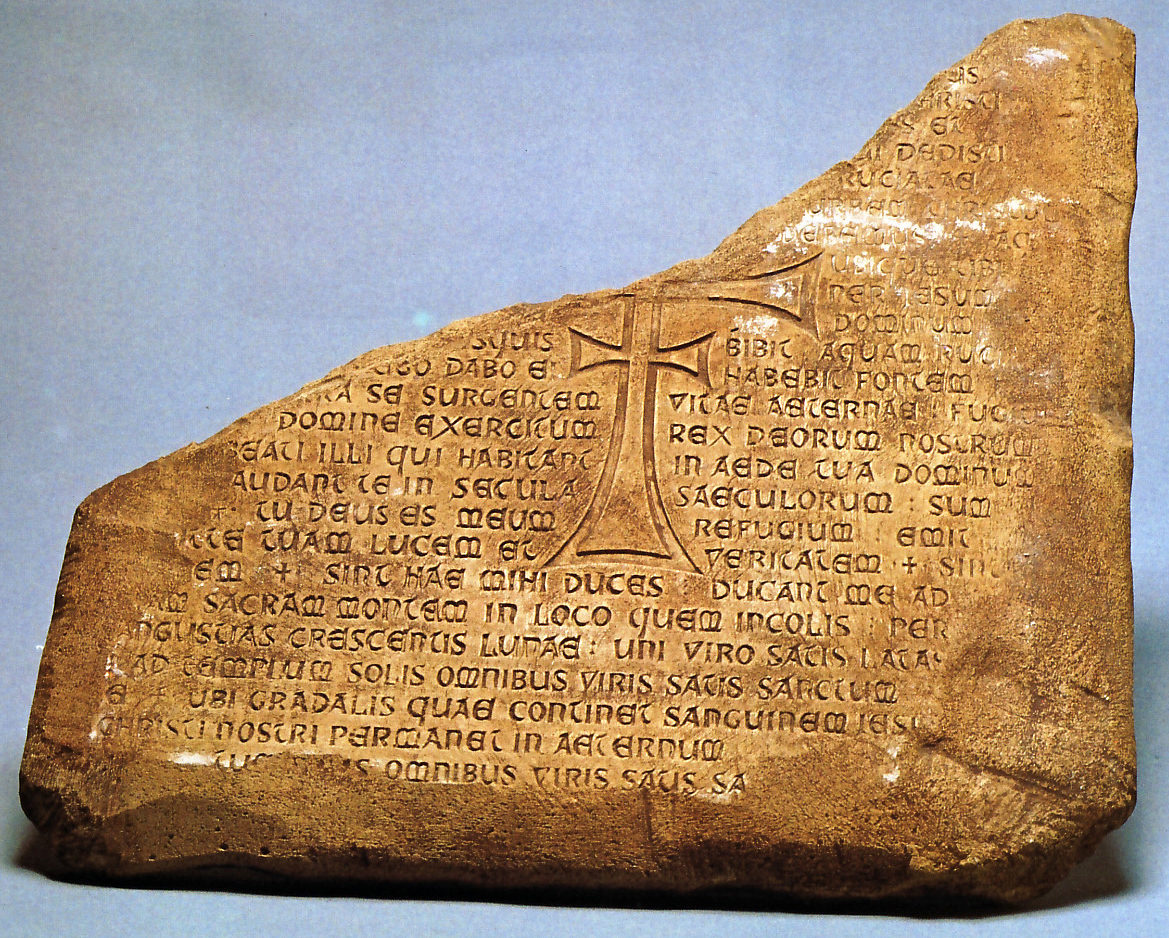 US
RISTI
S ET
I DEDISTI
RUCIATAE
UBIQUE TIBI
PER IESUM
DOMINUM
SQUIS BIBIT AQUAM
EGO DABO EI HABEBIT FONTEM
SE SURGENTEM VITAE AETERNAE :
DOMINE EXERCITUM REX DEORUM NOSTRUM
EATI ILLI QUI HABITANT IN AEDE TUA DOMINUM
AUDANT TE IN SECULA SAECULORUM : SUM
+ TU DEUS ES MEUM REFUGIUM : EMIT
TTE TUAM LUCEM ET VERITATEM + SINT
EM + SINT HAE MIHI DUCES : DUCANT ME AD
AM SACRAM MONTEM IN LOCO QUEM INCOLIS : PER
ANGUSTIAS CRESCENTIS LUNAE : UNI VIRO SATIS LATAS
AD TEMPLUM SOLIS OMNIBUS VIRIS SATIS SANCTUM
E + UBI GRADALIS QUAE CONTINET SANGUINEM IESU
CHRISTI NOSTRI PERMANET IN AETERNUM
OMNIBUS VIRIS SATIS SA